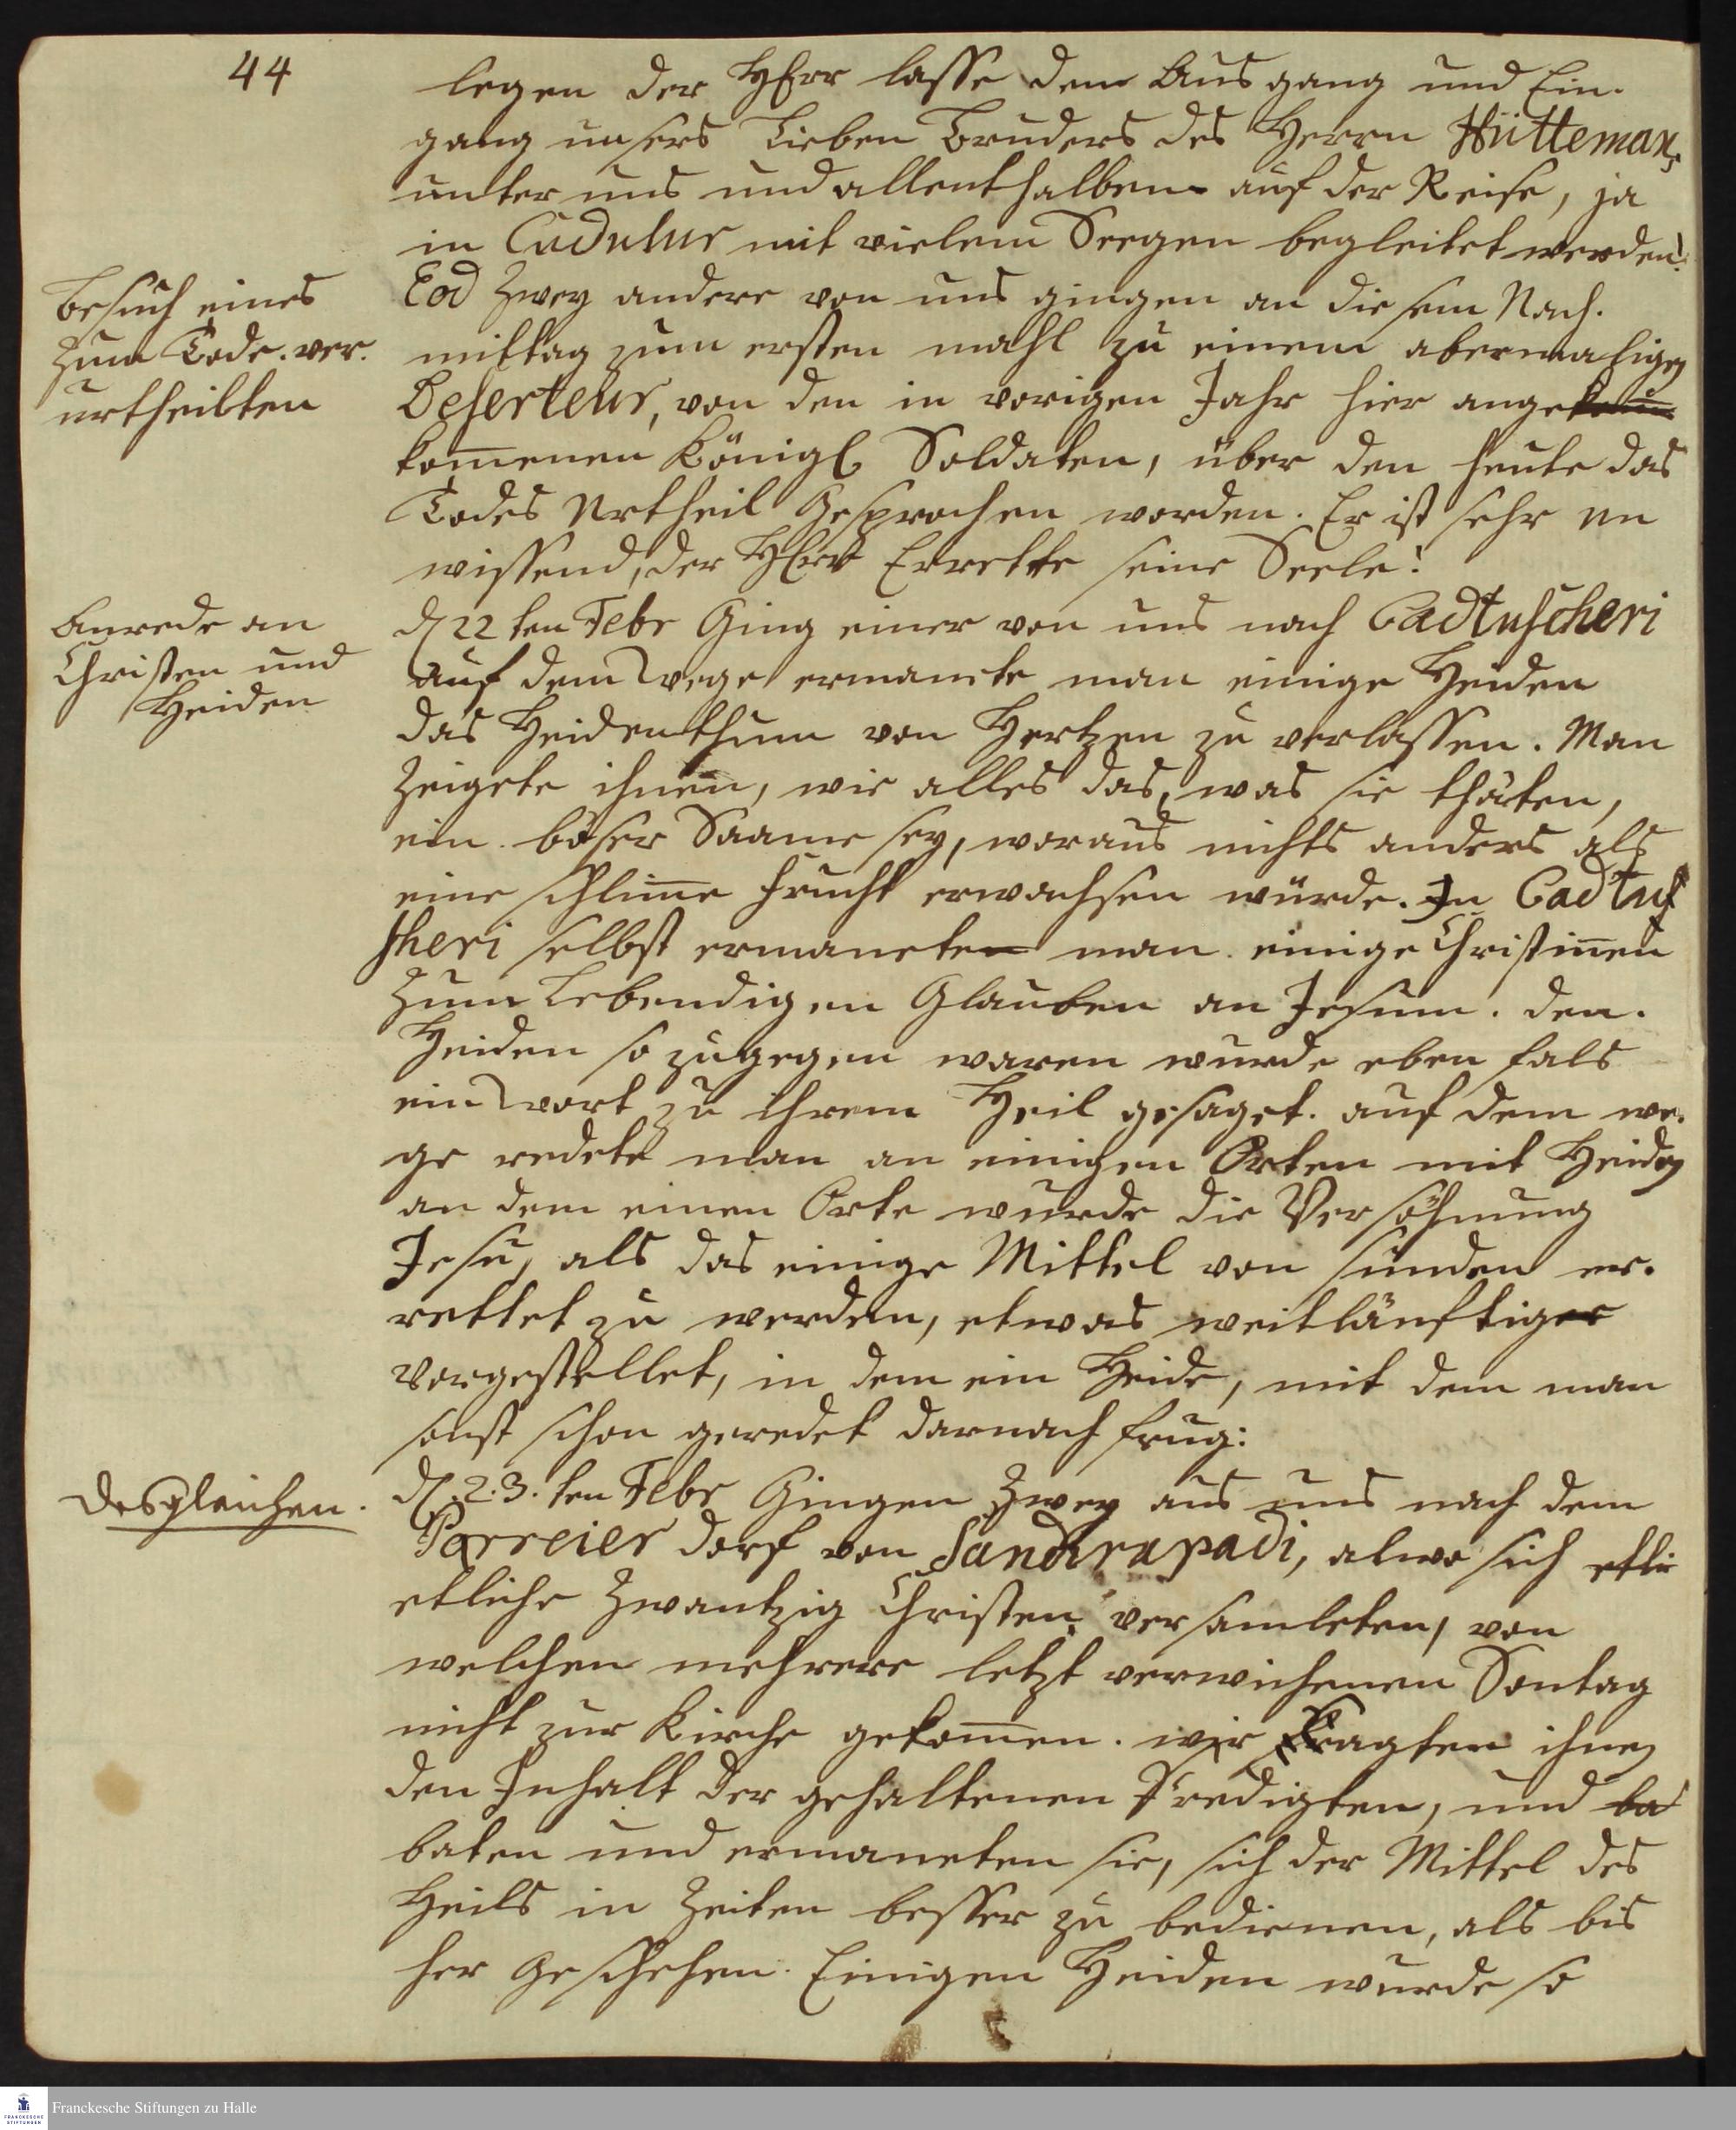 44
legen der HErr lasse den Ausgang und Ein-
gang unsers Lieben Bruders des Herrn Hüttemans
unter uns und allenthalben auf der Reise, ja
in Cudulur mit vielem Seegen begleitet werden!
Besuch eines
zum Tode ver-
urtheilten
Eod Zwey andere von uns gingen an diesem Nach-
mittag zum ersten mahl zu einem abermaligen
Deserteur, von den in vorigen Jahr hier ange
kom̅enen Königl Soldaten, über den heute das
Todes Urtheil Gesprochen worden. Er ist sehr un
wissend, der HErr Errette seine Seele!
Anrede an
Christen und
Heiden
d 22 ten Febr Ging einer von uns nach Cadtuscheri
auf dem Wege ermante man einige Heiden
das Heidenthum von Hertzen zu verlassen. Man
Zeigete ihnen, wie alles das, was sie thäten,
ein böser Saame sey, woraus nichts anders als
eine schlim̅e Frucht erwachsen würde. In Cadtus
sheri selbst ermaneten man einige Christin̅en
zum Lebendigen Glauben an Jesum. den
Heiden so zugegen waren wurde eben fals
ein Wort zu ihrem Heil gesaget. auf dem we-
ge redete man an einigen Orten mit Heiden
an dem einen Orte wurde die Versöhnung
Jesu, als das einige Mittel von sünden er-
rettet zu werden, etwas weitläuftiger
vorgestellet, in dem ein Heide, mit dem man
sonst schon geredet darnach frug:
desgleichen.
d. 2.3. ten Febr Gingen Zwey aus uns nach dem
Parreier dorf von Sandirapadi, alwo sich etli
etliche Zwantzig Christen versamleten, von
welchen mehrere letzt verwichenen Sontag
nicht zur Kirche gekom̅en. wir sagten ihnen
den Inhalt der gehaltenen Predigten, und ba
baten und ermaneten sie, sich der Mittel des
Heils in Zeiten besser zu bedienen, als bis
her Geschehen. Einigen Heiden wurde so
Franckesche Stiftungen zu Halle